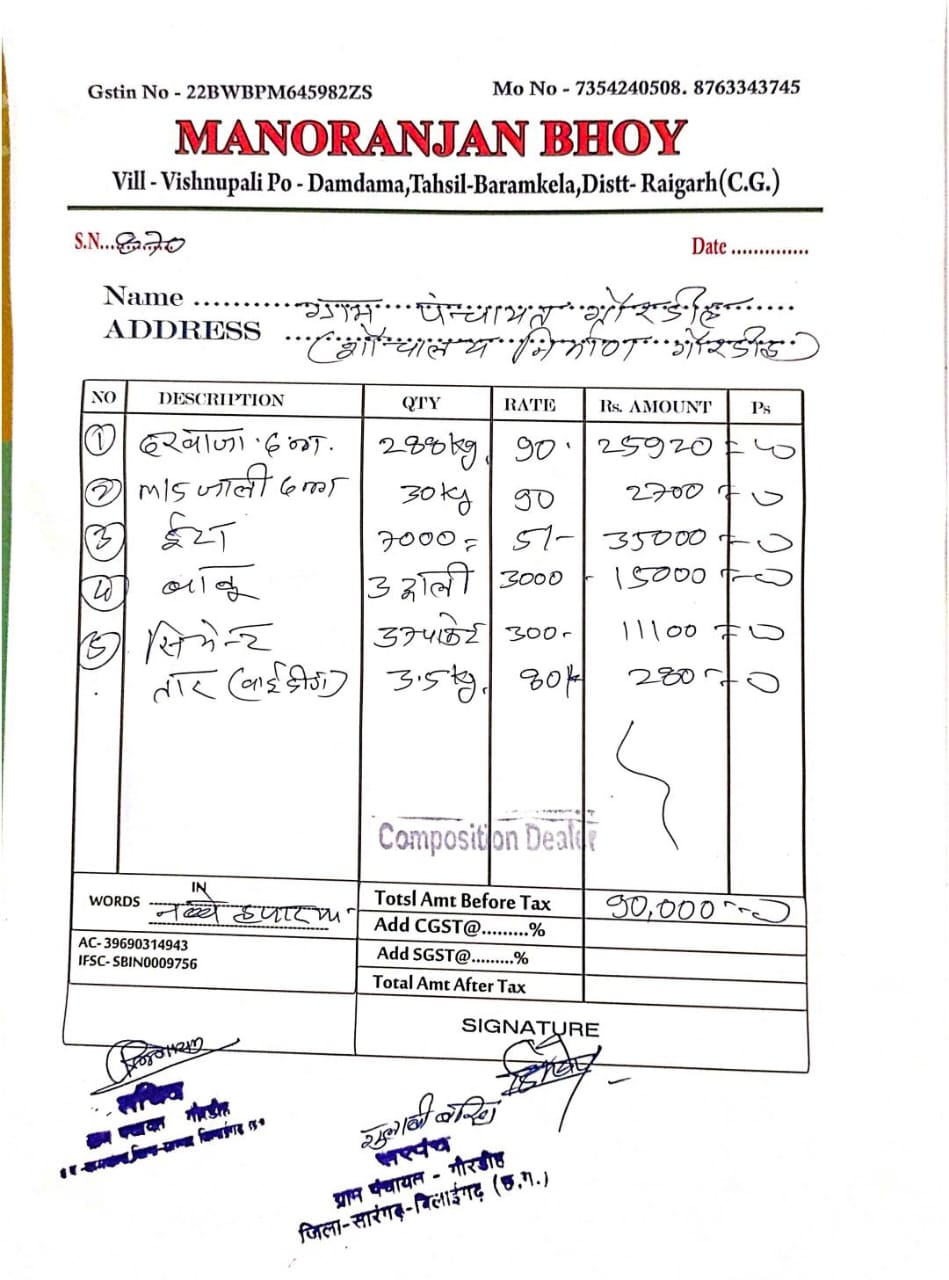 Gstin No - 22BWBPM645982ZS Mo No - 7354240508. 8763343745
MANORANJAN BHOY
Vill - Vishnupali Po - Damdama,Tahsil-Baramkela,Distt- Raigarh(C.G.)
S.N...870 Date ..............
Name ग्राम पंन्चायत गोरडीह
ADDRESS (शौचालय निर्माण गोरडीह)
NO DESCRIPTION QTY RATE Rs. AMOUNT Ps
① दरवाजा 6 नग. 288kg. 90. 25920 = 00
② M/S जाली 6 नग 30kg 90 2700 = 0
③ ईटा 7000 = 5/- 35000 = 0
④ बालू 3 ट्राली 3000 - 15000 = 0
⑤ सिमेन्ट 37 पाकेट 300 - 11100 = 0
. तार (वाईडीग) 3.5kg. 80/- 280 = 0
Composition Dealer
IN
WORDS नब्बे हजार Totsl Amt Before Tax 90,000 = 0
Add CGST@.........%
AC- 39690314943
IFSC- SBIN0009756
Add SGST@.........%
Total Amt After Tax
SIGNATURE
सचिव
ग्राम पंचायत गौरडीह
सरपंच
ग्राम पंचायत - गौरडीह
जिला-सारंगढ़-बिलाईगढ़ (छ.ग.)